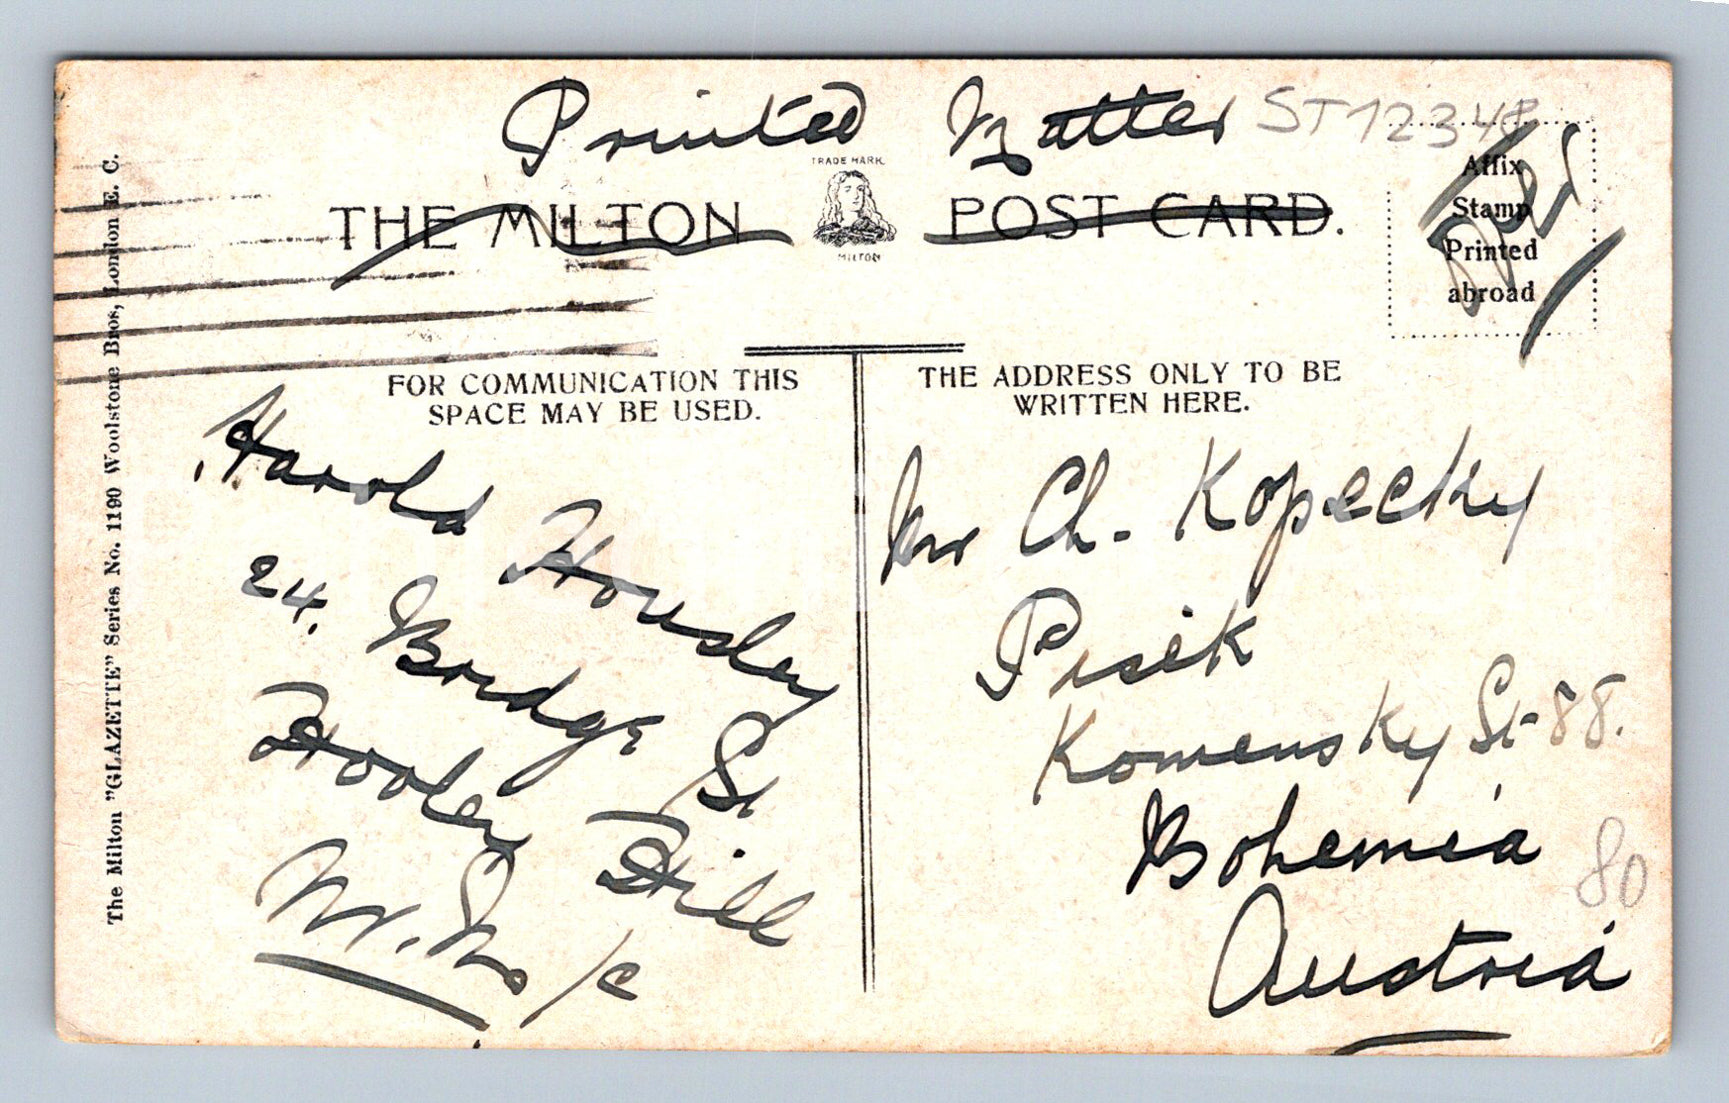 Printed Matter ST12348
TRADE MARK.
THE MILTON POST CARD.
MILTON
Affix
Stamp
Printed
abroad
FOR COMMUNICATION THIS
SPACE MAY BE USED.
THE ADDRESS ONLY TO BE
WRITTEN HERE.
Harold Housley
24. Bridge St
Hooley Hill
M/c
Mr Ch. Kopecky
Pisek
Komensky St 88.
Bohemia
80
Austria
The Milton "GLAZETTE" Series No. 1190 Woolstone Bros, London E. C.